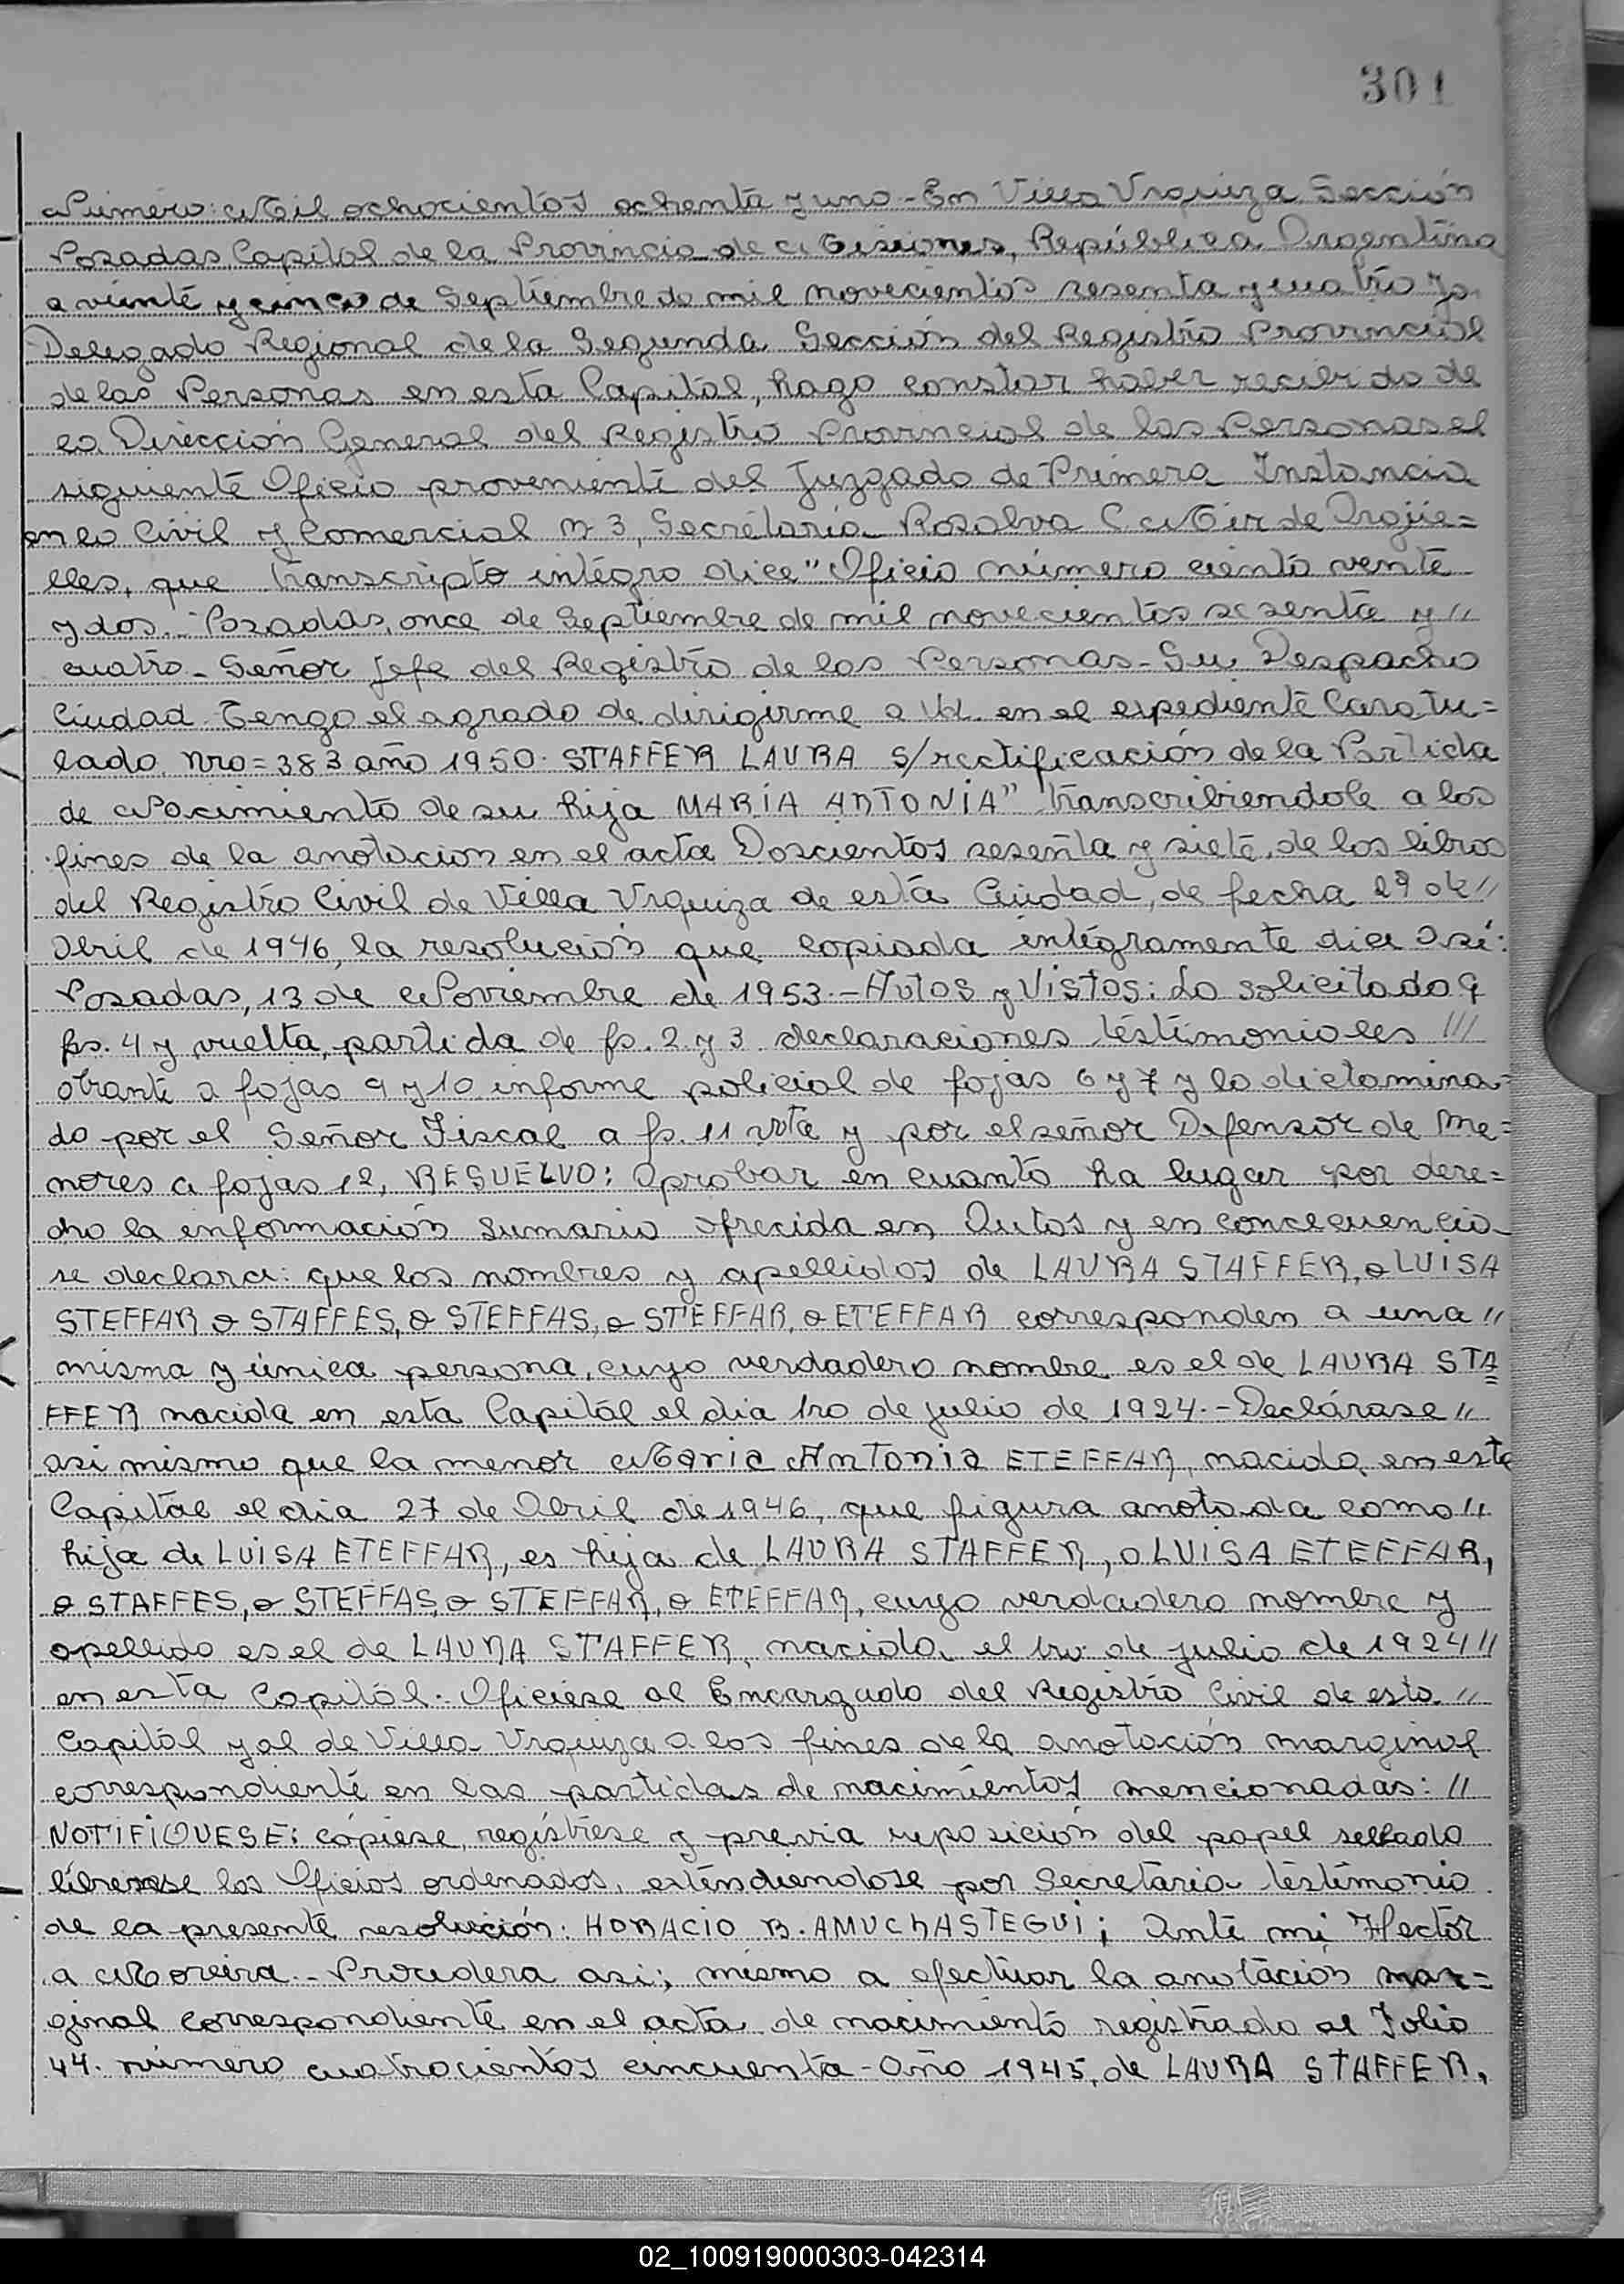 301
Número: Mil ochocientos ochenta y uno - En Villa Urquiza Sección
Posadas, Capital de la Provincia de Misiones, República Argentina
a veinte y cinco de Septiembre de mil novecientos sesenta y cuatro yo
Delegado Regional de la Segunda Sección del Registro Provincial
de las Personas en esta Capital, hago constar haber recibido de
la Dirección General del Registro Provincial de las Personas el
siguiente Oficio proveniente del Juzgado de Primera Instancia
en lo Civil y Comercial Nº 3, Secretaría Rosalva C. Mir de Argüe=
lles, que transcripto integro dice "Oficio número ciento vente
y dos.- Posadas, once de Septiembre de mil novecientos sesenta y //
cuatro - Señor Jefe del Registro de las Personas - Su Despacho
Ciudad. Tengo el agrado de dirigirme a Ud. en el expediente Caratu=
lado. Nro=383 año 1950. STAFFER LAURA s/rectificación de la Partida
de Nacimiento de su hija MARÍA ANTONIA" transcribiendole a los
fines de la anotacion en el acta Doscientos sesenta y siete, de los libros
del Registro Civil de Villa Urquiza de esta Ciudad, de fecha 29 de //
Abril de 1946, la resolución que copiada integramente dice asi:
Posadas, 13 de Noviembre de 1953.- Autos y Vistos: Lo solicitado a
fs. 4 y vuelta, partida de fs. 2 y 3 declaraciones testimoniales ///
obrante a fojas 9 y 10 informe policial de fojas 6 y 7 y lo dictamina=
do por el Señor Fiscal a fs. 11 vta y por el señor Defensor de Me=
nores a fojas 12, RESUELVO: Aprobar en cuanto ha lugar por dere=
cho la información sumaria ofrecida en Autos y en concecuencia
se declara: que los nombres y apellidos de LAURA STAFFER, o LUISA
STEFFAR o STAFFES, o STEFFAS, o STEFFAR, o ETEFFAR corresponden a una //
misma y única persona, cuyo verdadero nombre es el de LAURA STA
FFER nacida en esta Capital el dia 1ro de julio de 1924.- Declárase //
asi mismo que la menor Maria Antonia ETEFFAR, nacida en esta
Capital el dia 27 de Abril de 1946, que figura anotada como //
hija de LUISA ETEFFAR, es hija de LAURA STAFFER, o LUISA ETEFFAR,
o STAFFES, o STEFFAS, o STEFFAR, o ETEFFAR, cuyo verdadero nombre y
apellido es el de LAURA STAFFER, nacida el 1ro. de julio de 1924 //
en esta Capital. Oficiese al Encargado del Registro Civil de esta //
Capital y al de Villa Urquiza a los fines de la anotación marginal
correspondiente en las partidas de nacimientos mencionadas: //
NOTIFIQUESE: cópiese, regístrese y previa reposición del papel sellado
librense los Oficios ordenados, extendiendose por Secretaria testimonio
de la presente resolución. HORACIO R. AMUCHASTEGUI; Ante mi Hector
a Moreira.- Procedera asi; mismo a efectuar la anotación mar=
ginal correspondiente en el acta de nacimiento registrado al Folio
44. número cuatrocientos cincuenta - Año 1945, de LAURA STAFFER,
02_100919000303-042314